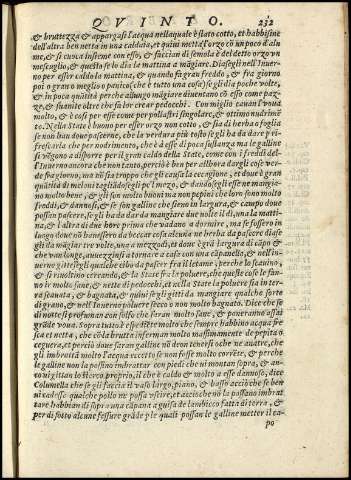 QVINTO. 232
& bruttezza & appargasi l'acqua nellaquale è stato cotto, et habbisine
dell'altra ben netta in una caldaia, et quiui metta l'orzo cō un poco d'alu
me, & si cuoca insieme con esso, & facciasi di semola è del detto orzo vn
mescuglio, & questo se lo dia la mattina a māgiare. Diasegli nell'Inuer
no per esser caldo la mattina, & quando fa gran freddo, & fra giorno
poi o grano o meglio o panico (che è tutto una cosa) se gli dia poche volte,
& in poca quātità perche assuogo māgiare diuentano cō esso come paz-
ze, & suanite oltre che fa lor crear pedocchi. Con miglio cauan l'voua
molto, & è cosi per esse come per pollastri singolare, & ottimo nudrimē
to. Nella State è buono per esser orzo non cotto, & sia di herba o foglia
se non han doue pascerne, che la verdura più tosto se gli ha da dare p ri-
frescarla che per nodrimento, che è à esse di poca sustanza ma le galline
si vēgono a disperre per il gran caldo della State, come con i freddi del-
l'Inuerno ancora che non tanto, perciò è ben per allhora dargli cose ver-
de, ma nō sia troppo che gli causa la cecagione, et doue è gran
quātità di meloni tagliādosegli pel mezo, & dandosegli esse ne mangia
no molto bene, & gli son molto buoni ma non pepini che loro sono molto
freddi, & dannosi, & se son galline che sieno in largura, & campo doue
possan pascere, se gli ha da dar da mangiare due volte il dì, una la matti
na, & l'altra di due hore prima che vadano a dormire, ma se fossero in
luogo doue nō hauessero da beccar cosa alcuna ne herba da pascere diasi
gli da māgiar tre volte, una a mezzodì, et doue è grā largura di cāpo &
che van longe, auuezzinsi a tornare a casa con una cāpanella, & nell'in-
uerno gittisegli qualche cosa da pascere fra il letame perche lo scauino,
& si rimoltino cercando, & la State fra la poluere, che queste cose le fan-
no ir molto sane, & nette di pedocchi, et nella State la poluere sia in ter-
ra scauata, & bagnata, & quini se gli gitti da mangiare qualche sorte
di grano, nell'Inuerno fiere fieno o non molto bagnato. Dice che se
di notte si profuman con solfo che seran molto sane, & poneranno assai
grāde voua. Sopra tutto è espediēte molto che sempre habbino acqua fre
sca et netta, che cō la brutta infermansi molto massimamente de pepita ò
cegueza, et perciò doue seran galline nō deon tenersi oche ne anatre, che
gli imbratta molto l'acqua eccetto se non fosse molto corrēte, & perche
le galline non la possino imbrattar con piedi che ui montan sopra, & an-
co ui gittan lo sterco proprio, il che è caldo & molto a esse dannoso, dice
Columella che se gli faccia il vaso largo, piano, & basso acciò che se ben
ui cadesse qualche pollo ne possa vscire, et acciochè nō la possano imbrat
tare habbian di sopra una cāpana a guisa de lambicco fatta di terra, &
per di sotto alcune fessure grāde p le quali possan le galline metter il ca-
po